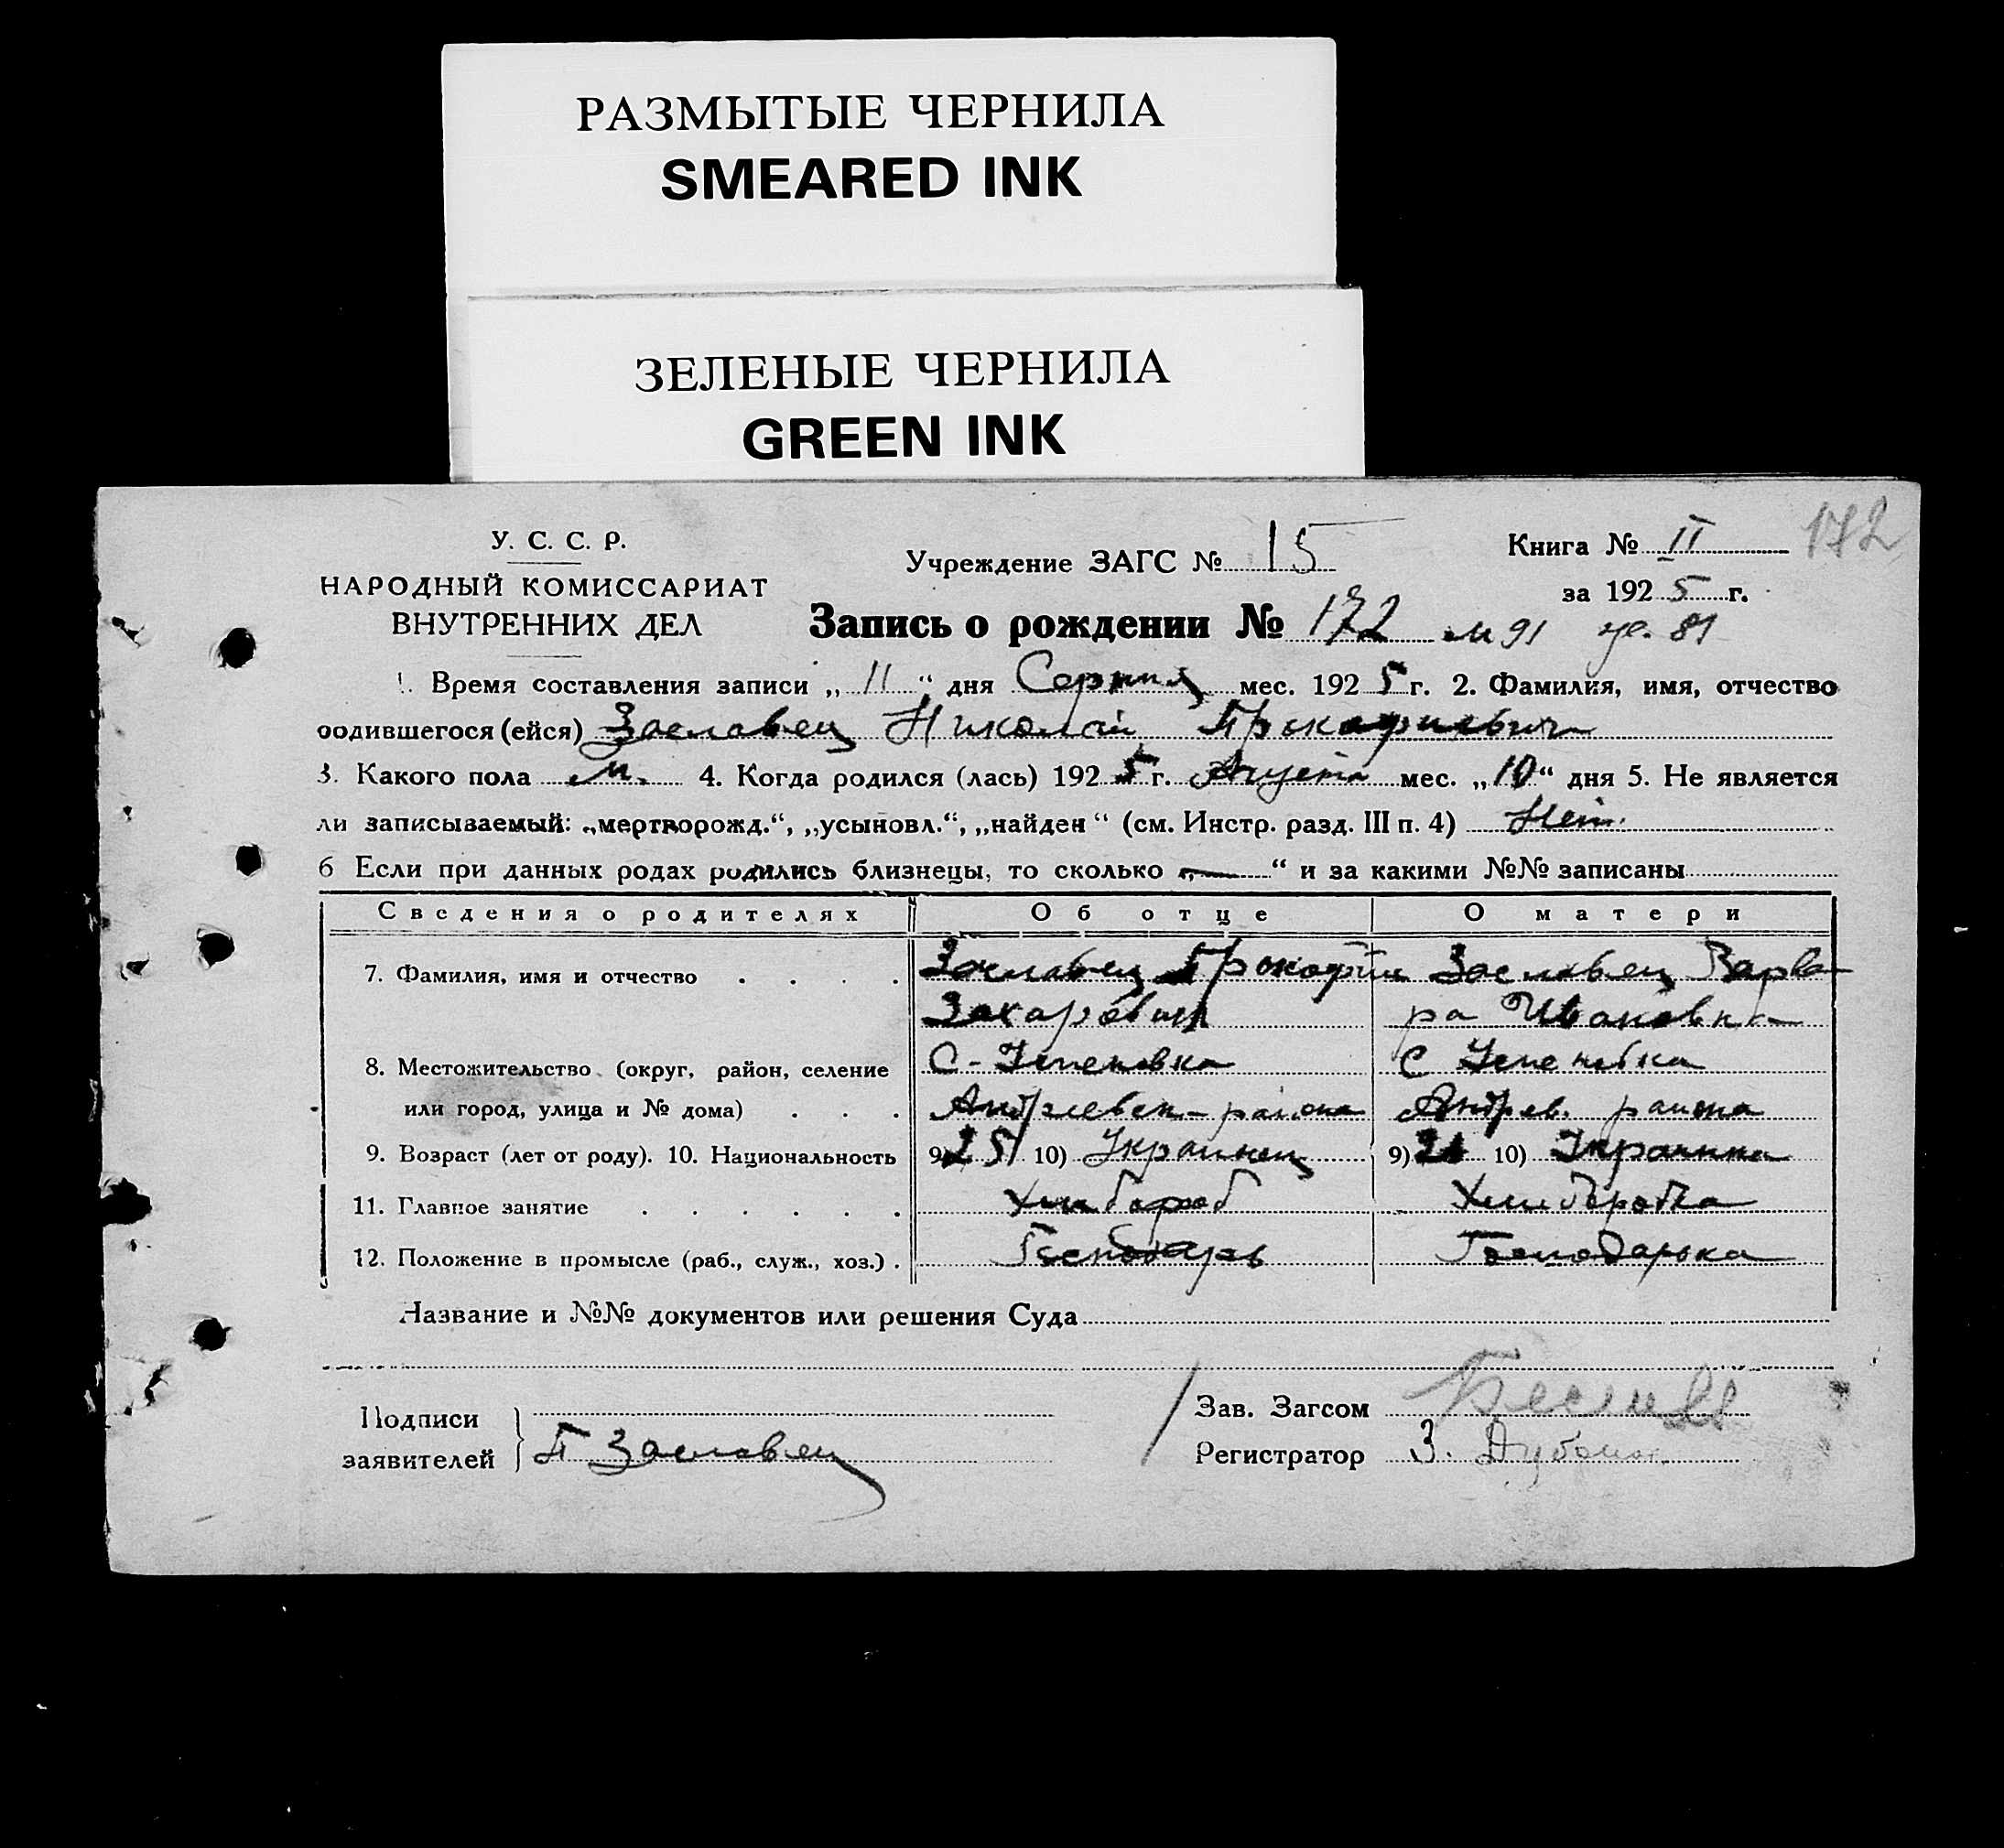 РАЗМЫТЫЕ ЧЕРНИЛА
SMEARED INK
ЗЕЛЕНЫЕ ЧЕРНИЛА
GREEN INK
172
У. С. С. Р.
НАРОДНЫЙ КОМИССАРИАТ
ВНУТРЕННИХ ДЕЛ
Учреждение ЗАГС № 15
Книга № II
за 1925 г.
Запись о рождении № 172 м 91 81
1. Время составления записи „ 11 “ дня Серпня мес. 1925 г. 2. Фамилия, имя, отчество
родившегося (ейся) Заславец Николай Прокофиевич
3. Какого пола м. 4. Когда родился (лась) 1925 г. Августа мес. „10“ дня 5. Не является
ли записываемый: „мертворожд.“, „усыновл.“, „найден“ (см. Инстр. разд. III п. 4) Нет.
6 Если при данных родах родились близнецы, то сколько „—“ и за какими №№ записаны
Сведения о родителях Об отце О матери
7. Фамилия, имя и отчество . . . . Заславец Прокофий Заславец Варва
Захарович ра Ивановна
8. Местожительство (округ, район, селение С-Успеновка С Успеновка
или город, улица и № дома) . . . Андреевск- района Андрев. района
9. Возраст (лет от роду). 10. Национальность 9) 25 10) Украинец 9) 10) Украинка
11. Главное занятие . . . . . . Хлибороб Хлиборобка
12. Положение в промысле (раб., служ., хоз.) . Господарь Господарька
Название и №№ документов или решения Суда
Подписи
заявителей П Заславец
Зав. Загсом
Регистратор З.